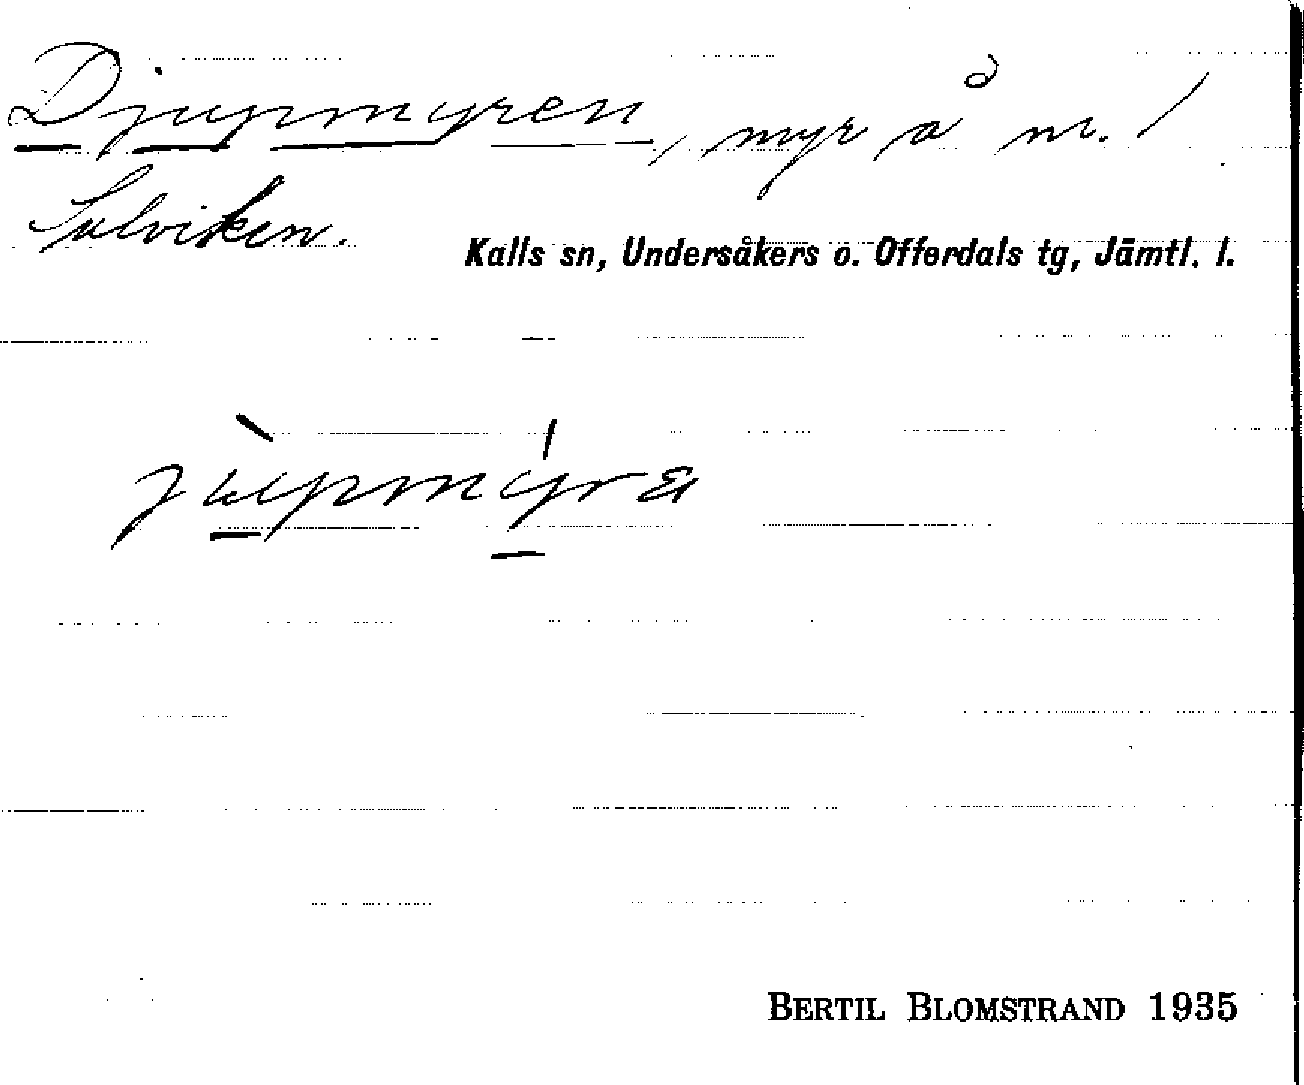 Djupmyren, myr å nr. 1
Sulviken.
Kalls sn, Undersåkers o. Offerdals tg, Jämtl. l.
jùpmýra
BERTIL BLOMSTRAND 1935